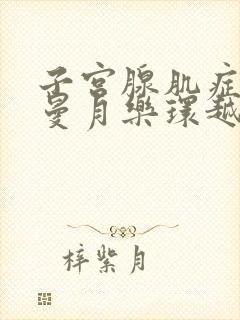 子宫腺肌症
曼月乐环越
梓紫月